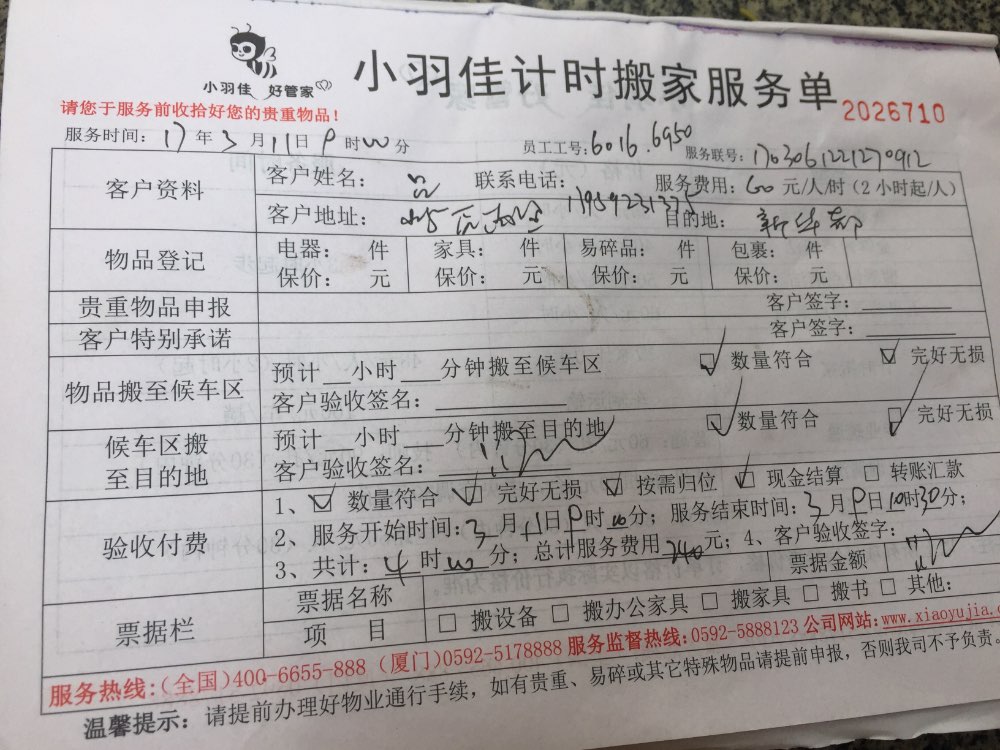 小羽佳 好管家
小羽佳计时搬家服务单
2026710
请您于服务前收拾好您的贵重物品！
服务时间: 17 年 3 月 11 日 时 分 员工工号: 6016.6950 服务联号: 1703061221270912
客户资料
客户姓名: 吕 联系电话: 服务费用: 60 元/人/时（2小时起/人）
客户地址: 目的地: 新华都
物品登记
电器: 件 家具: 件 易碎品: 件 包裹: 件
保价: 元 保价: 元 保价: 元 保价: 元
贵重物品申报 客户签字:
客户特别承诺 客户签字:
物品搬至候车区
预计__小时___分钟搬至候车区 数量符合 完好无损
客户验收签名:
候车区搬至目的地
预计__小时___分钟搬至目的地 数量符合 完好无损
客户验收签名:
验收付费
1、 数量符合 完好无损 按需归位 现金结算 转账汇款
2、服务开始时间: 3 月 11 日 时 分；服务结束时间: 3 月 日 10 时 30 分；
3、共计: 4 时 分；总计服务费用 240 元；4、客户验收签字:
票据栏
票据名称 票据金额
项 目 搬设备 搬办公家具 搬家具 搬书 其他:
服务热线:(全国)400-6655-888 (厦门)0592-5178888 服务监督热线:0592-5888123 公司网站:www.xiaoyujia.
温馨提示: 请提前办理好物业通行手续，如有贵重、易碎或其它特殊物品请提前申报，否则我司不予负责。